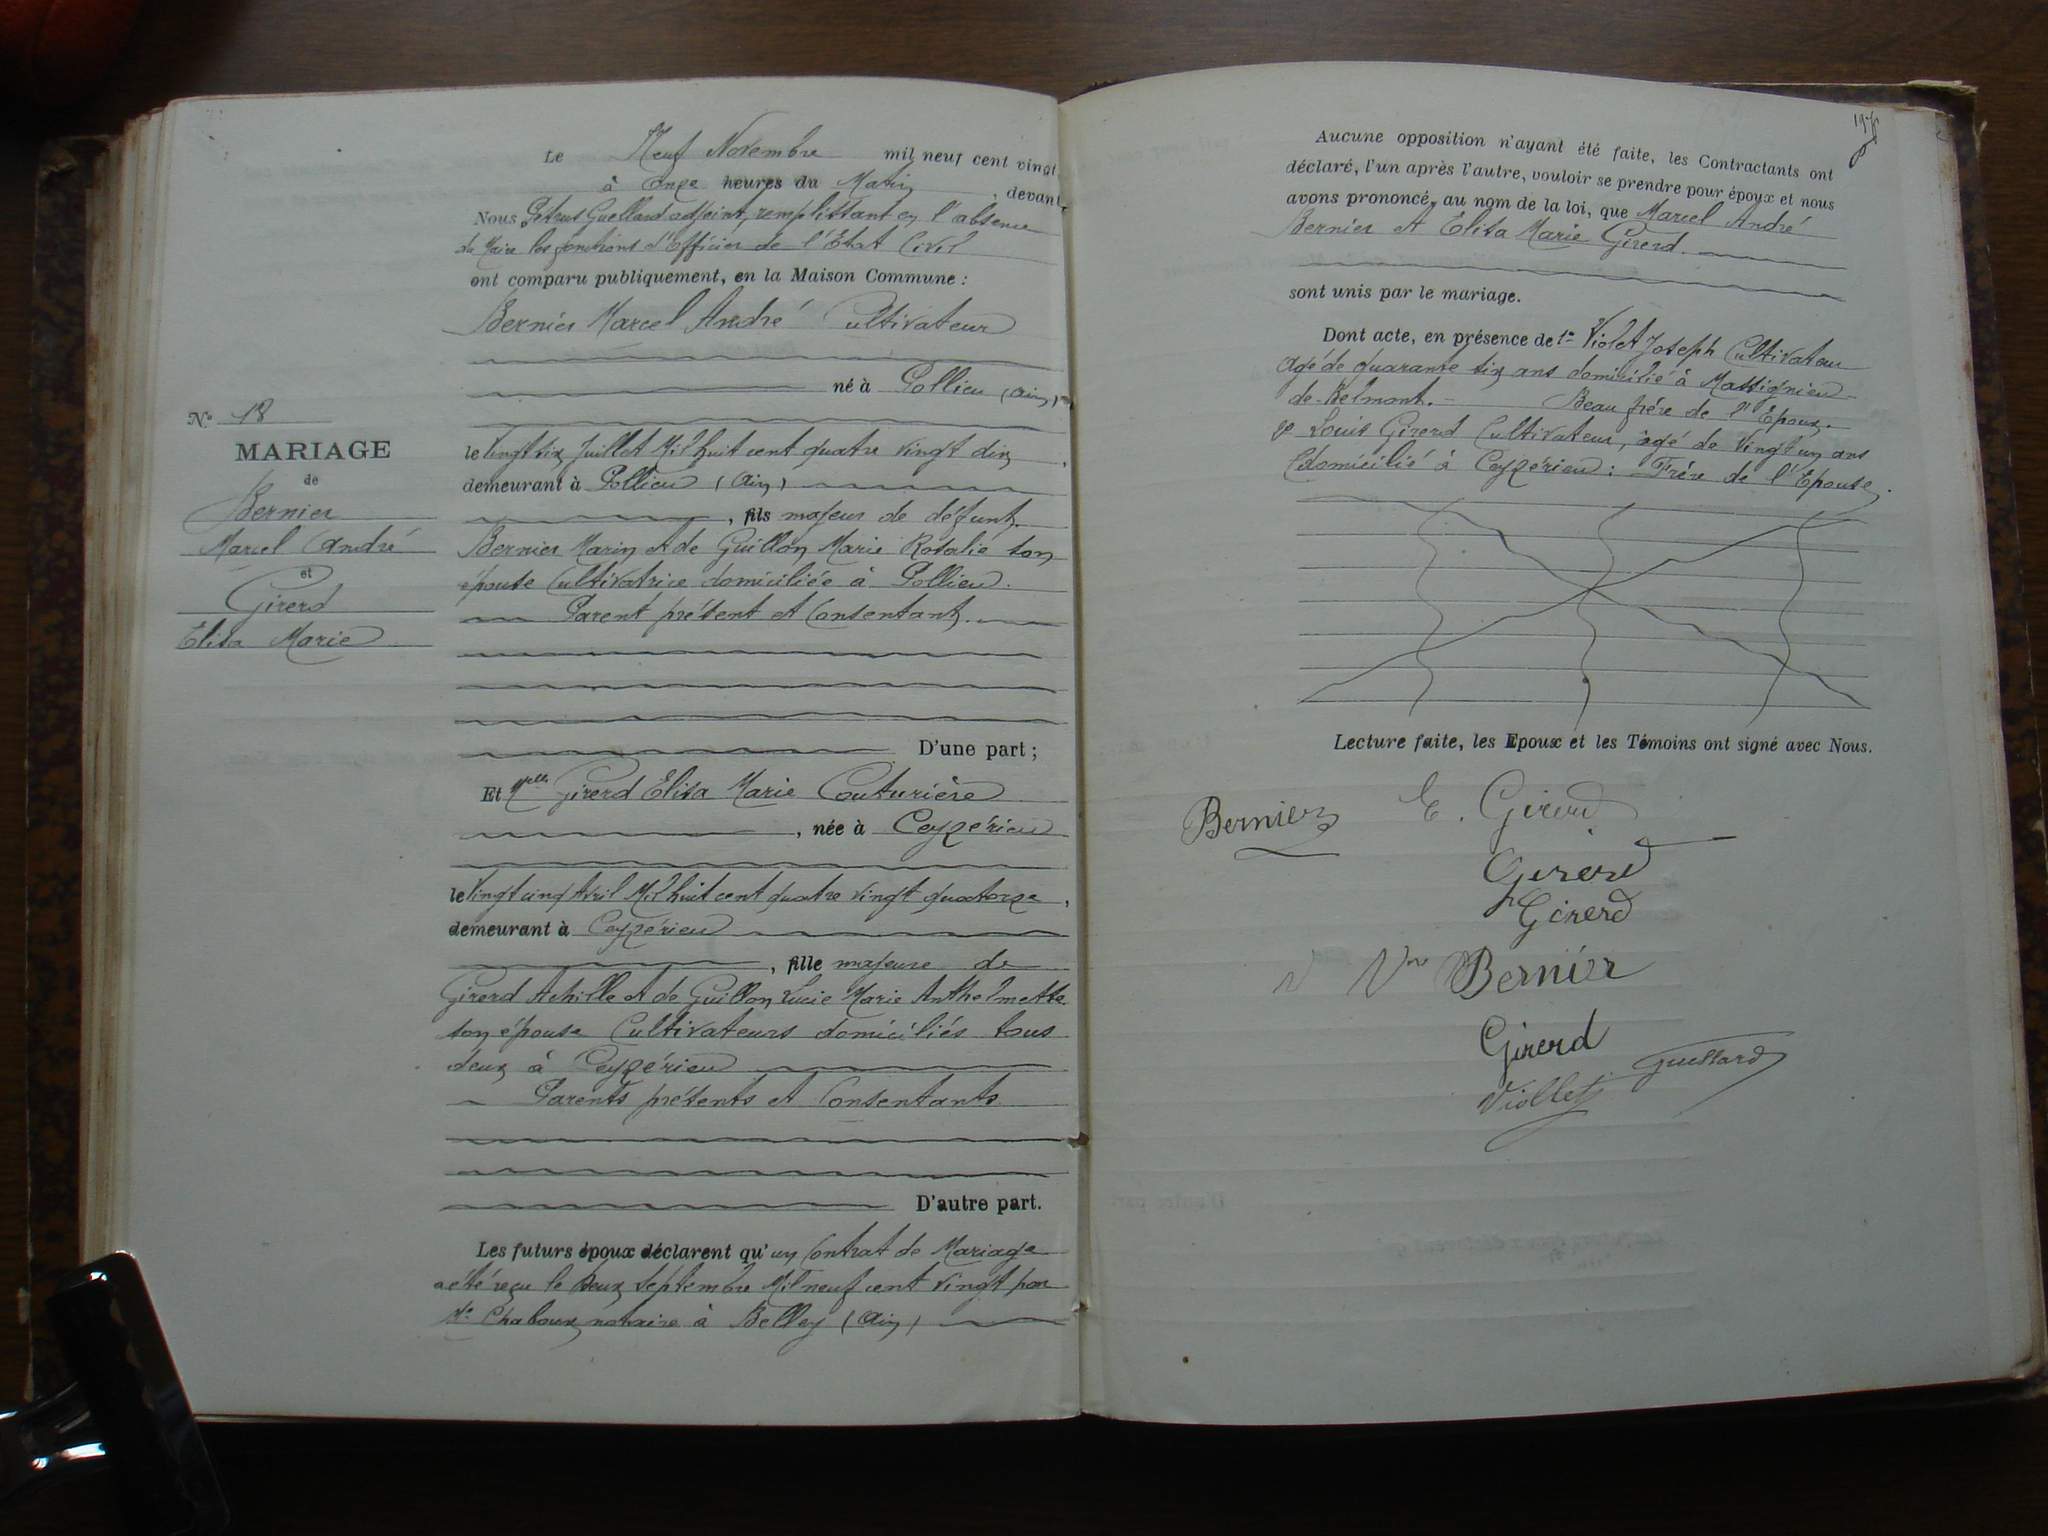 Le Neuf Novembre mil neuf cent vingt
à onze heures du Matin, devant
Nous Petrus Guellard adjoint, remplissant en l'absence
du Maire les fonctions d'Officier de l'Etat Civil
ont comparu publiquement, en la Maison Commune :
Bernier Marcel André Cultivateur
né à Pollieu (Ain)
le Vingt six Juillet Mil huit cent quatre vingt dix,
demeurant à Pollieu (Ain)
, fils majeur de défunt
Bernier Marin et de Guillon Marie Rosalie son
épouse Cultivatrice domiciliée à Pollieu.
Parent présent et Consentant.
D'une part ;
Et Melle Girerd Elisa Marie Couturière
, née à Ceyzérieu
le Vingt cinq Avril Mil huit cent quatre vingt quatorze,
demeurant à Ceyzérieu
, fille majeure de
Girerd Achille et de Guillon Lucie Marie Anthelmette
son épouse Cultivateurs domiciliés tous
deux à Ceyzérieu
Parents présents et Consentants
D'autre part.
Les futurs époux déclarent qu'un Contrat de Mariage
a été reçu le deux Septembre Mil neuf cent vingt par
Me Chaboux notaire à Belley (Ain)
No 18
MARIAGE
de
Bernier
Marcel André
et
Girerd
Elisa Marie
Aucune opposition n'ayant été faite, les Contractants ont
déclaré, l'un après l'autre, vouloir se prendre pour époux et nous
avons prononcé, au nom de la loi, que Marcel André
Bernier et Elisa Marie Girerd.
sont unis par le mariage.
Dont acte, en présence de 1° Violet Joseph Cultivateur
agé de quarante six ans domicilié à Massignieu
de-Belmont. - Beau frère de l'Epoux.
2° Louis Girerd Cultivateur, agé de Vingt un ans
domicilié à Ceyzérieu : Frère de l'Epouse.
Lecture faite, les Epoux et les Témoins ont signé avec Nous.
Bernier E. Girerd
Girerd
Girerd
Vve Bernier
Girerd
Guellard
Viollet